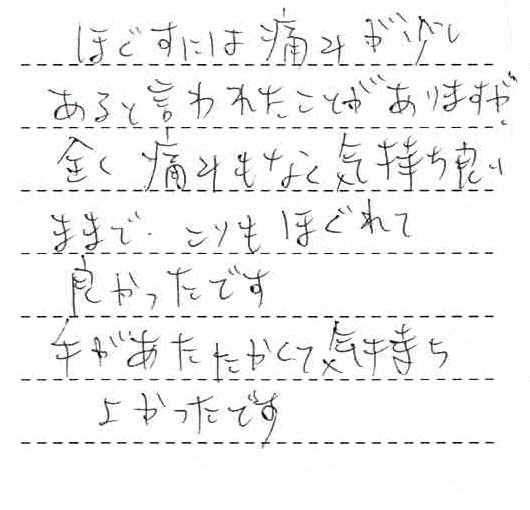 ほぐすには痛みが少し
あると言われたことがありますが、
全く痛みもなく気持ち良い
ままで、こりもほぐれて
良かったです
手があたたかくて気持ち
よかったです